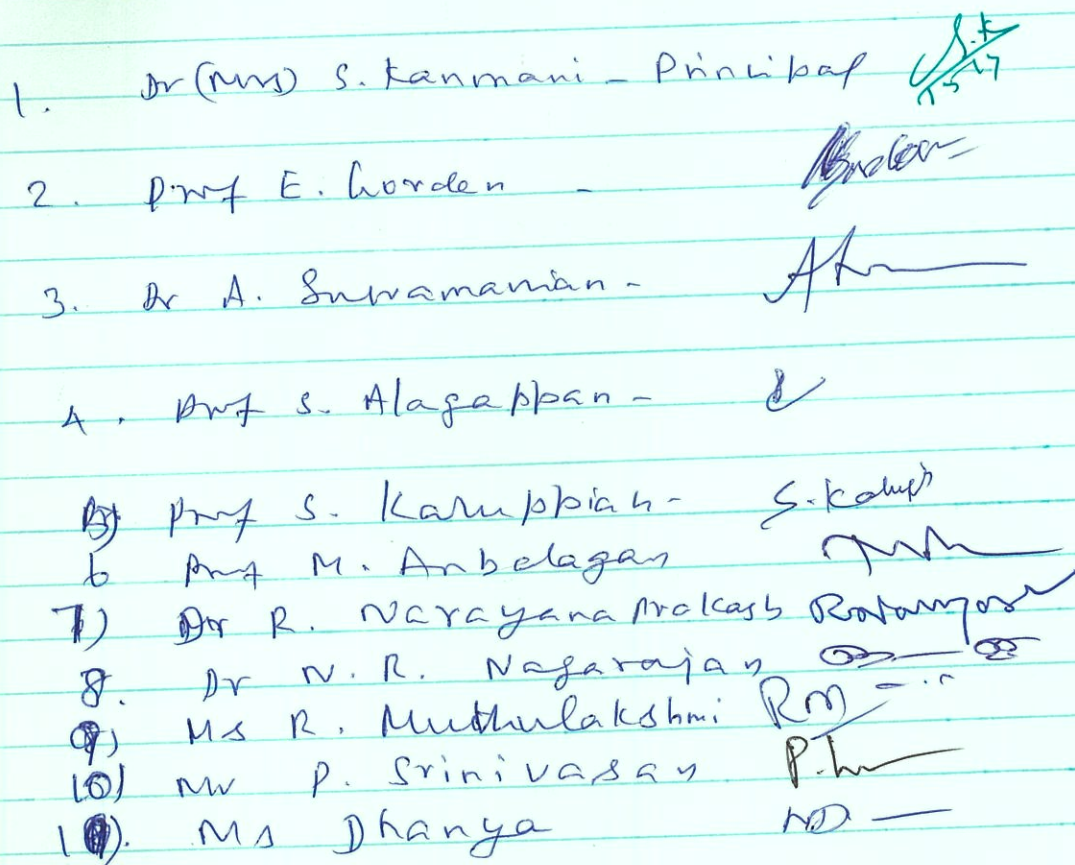 1. Dr (Mrs) S. Kanmani - Principal S.K
2. Prof E. Gorden -
3. Dr A. Suvramanian -
4. Prof S. Alagappan -
5) Prof S. Karuppiah -
6 Prof M. Anbalagan
7) Dr R. Narayana Prakash
8. Dr N. R. Nagarajan
9) Ms R. Muthulakshmi RM
10) Mr P. Srinivasan
11). Ms Dhanya